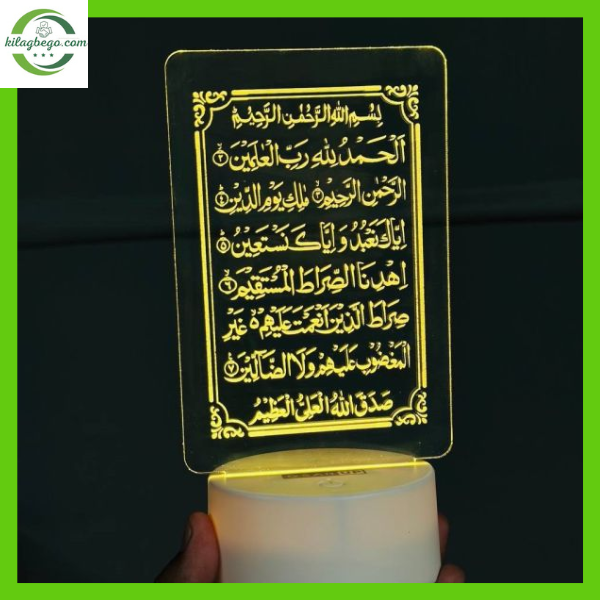 kilagbego.com
بِسْمِ اللهِ الرَّحْمٰنِ الرَّحِيْمِ
اَلْحَمْدُ لِلّٰهِ رَبِّ الْعٰلَمِيْنَ ٢
الرَّحْمٰنِ الرَّحِيْمِ ٣ مٰلِكِ يَوْمِ الدِّيْنِ ٤
اِيَّاكَ نَعْبُدُ وَ اِيَّاكَ نَسْتَعِيْنُ ٥
اِهْدِنَا الصِّرَاطَ الْمُسْتَقِيْمَ ٦
صِرَاطَ الَّذِيْنَ اَنْعَمْتَ عَلَيْهِمْ ە غَيْرِ
الْمَغْضُوْبِ عَلَيْهِمْ وَلَا الضَّآلِّيْنَ ٧
صَدَقَ اللهُ الْعَلِىُّ الْعَظِيْمُ